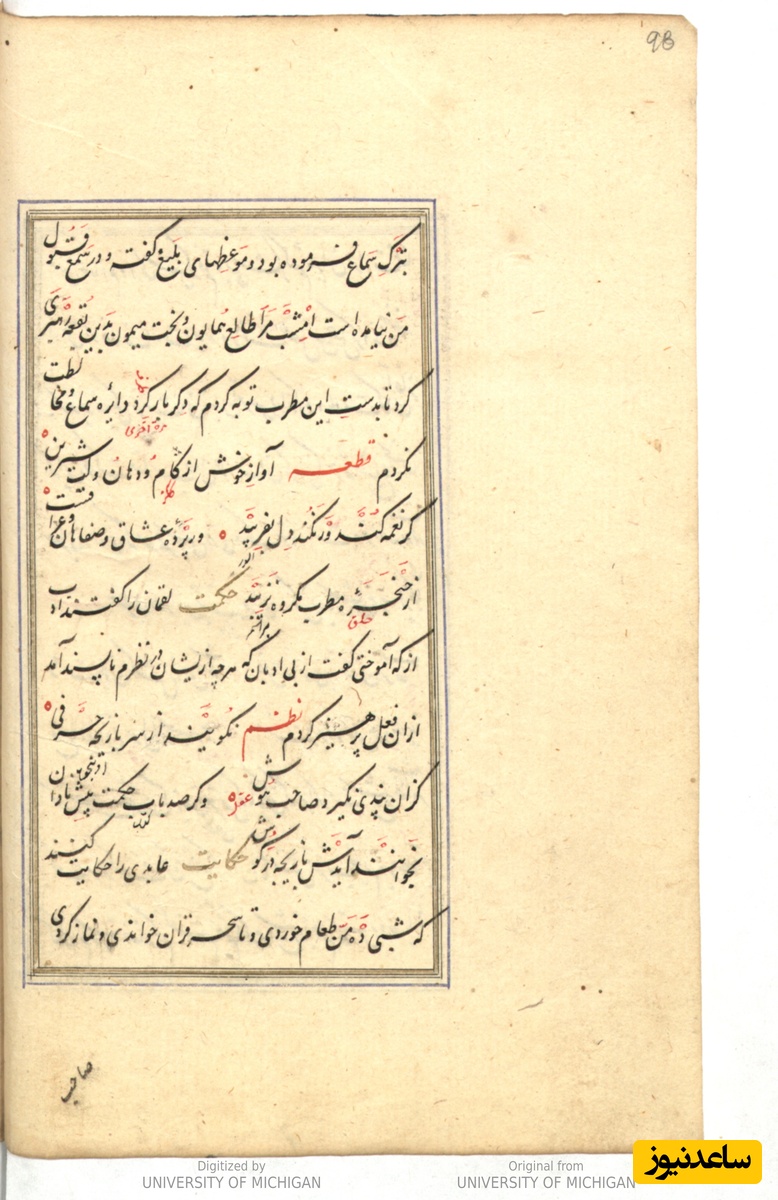 98
بترک سماع فرموده بود و موعظهای بلیغ گفته و در سمع قبول
من نیامده است امشب مرا طالع همایون و بخت میمون بدین بقعه رهبری
کرد تا بدست این مطرب توبه کردم که دگر بار گرد دایره سماع و مخالطت
نگردم قطعه آواز خوش از کام و دهان و لب شیرین
گر نغمه کند ور نکند دل بفریبد ور پرده عشاق و صفاهان و عراقست
از حنجره مطرب مکروه نزیبد حکمت لقمان را گفتند ادب
حلق
از که آموختی گفت از بی ادبان که هرچه از ایشان در نظرم ناپسند آمد
ازان فعل پرهیز کردم نظم نگویند از سر بازیچه حرفی
کزان پندی نگیرد صاحب هوش وگر صد باب حکمت پیش نادان
بخوانند آیدش بازیچه در گوش حکایت عابدی را حکایت کنند
که شبی ده من طعام خوردی و تا سحر قران خواندی و نماز کردی
صاحب
Digitized by
UNIVERSITY OF MICHIGAN
Original from
UNIVERSITY OF MICHIGAN
ساعدنیوز